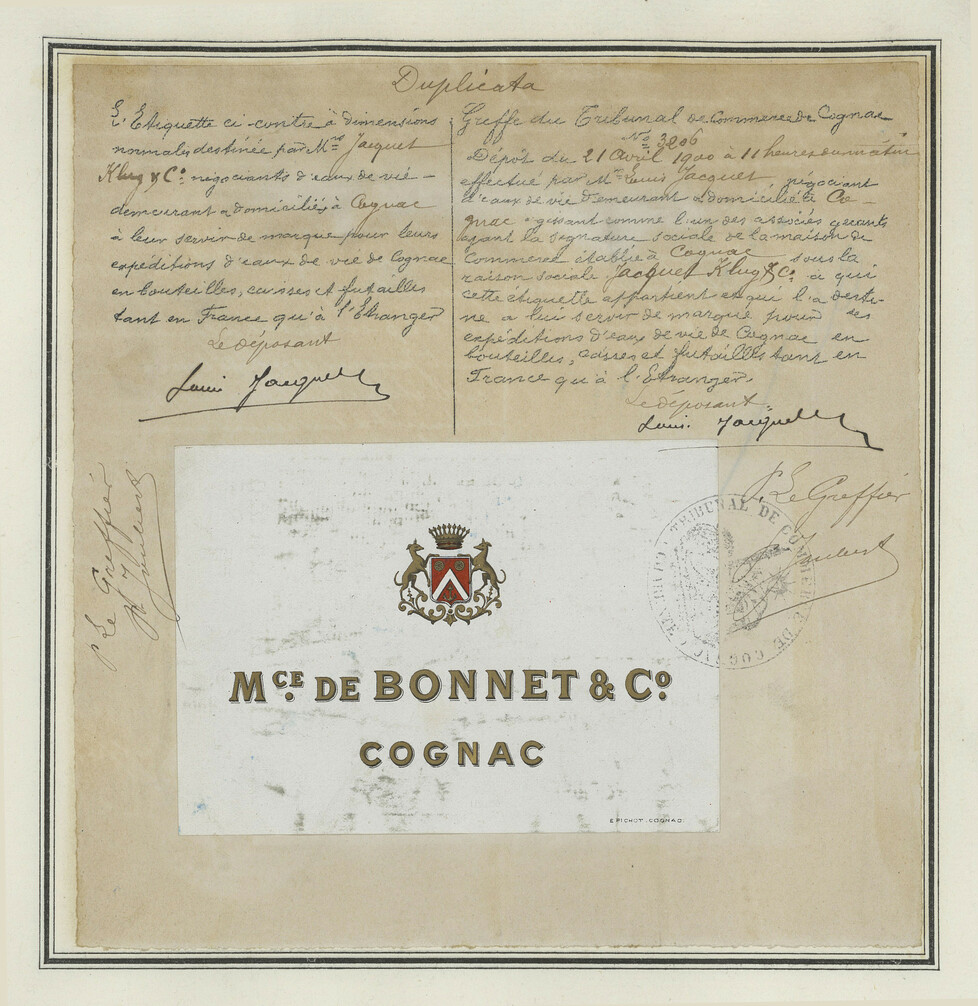 Duplicata
L'Etiquette ci-contre à dimensions
normales destinée par Mrs Jacquet
Klug & Co négociants d'eaux de vie -
demeurant & domiciliés à Cognac
à leur servir de marque pour leurs
expéditions d'eaux de vie de Cognac
en bouteilles, caisses et futailles
tant en France qu'à l'Etranger
Le déposant
Louis Jacquet
Greffe du Tribunal de Commerce de Cognac
No 3206
Dépôt du 21 Avril 1900 à 11 heures du matin
effectué par Mr Louis Jacquet, négociant
d'eaux de vie demeurant & domicilié à Co-
gnac agissant comme l'un des associés gérants
ayant la signature sociale de la maison de
Commerce établie à Cognac sous la
raison sociale Jacquet Klug & Co à qui
cette étiquette appartient et qui l'a desti-
né à lui servir de marque pour ses
expéditions d'eaux de vie de Cognac en
bouteilles, caisses et futailles tant en
France qu'à l'Etranger.
Le déposant.
Louis Jacquet
P. Le Greffier
Joubert
P Le Greffier
Joubert
TRIBUNAL DE COMMERCE DE COGNAC
Mce. DE BONNET & Co.
COGNAC
E. PICHOT. COGNAC.